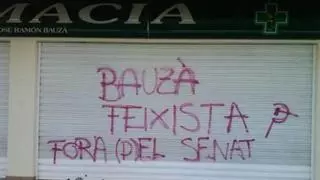 MACIA
JOSE RAMÓN BAUZÁ
BAUZÀ
FEIXISTA
FORA (P)EL SENAT